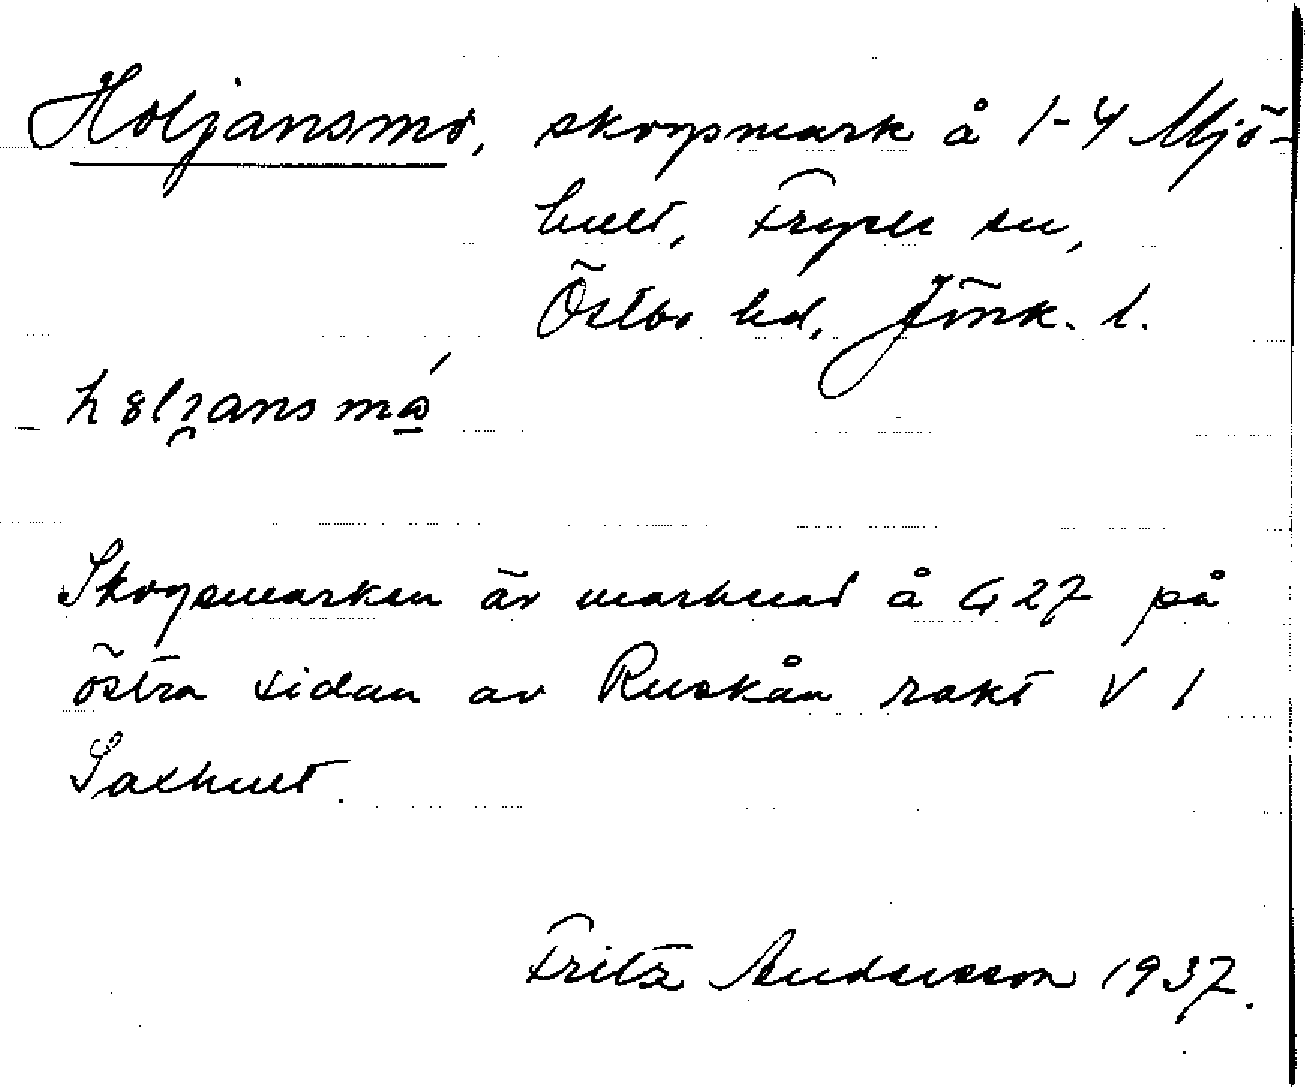 Holjansmo, skogsmark å 1-4 Mjö-
hult, Fryele sn,
Östbo hd, Jönk. l.
Skogsmarken är markerad å G 27 på
östra sidan av Ruskån rakt V 1
Saxhult.
Fritz Andersson 1937.